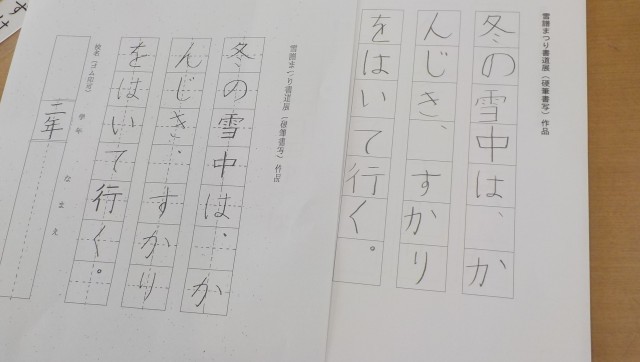 雪譜まつり書道展（硬筆書写）作品
冬の雪中は、か
んじき、すかり
をはいて行く。
雪譜まつり書道展（硬筆書写）作品
冬の雪中は、か
んじき、すかり
をはいて行く。
校名（ゴム印可）
学年 なまえ
三年